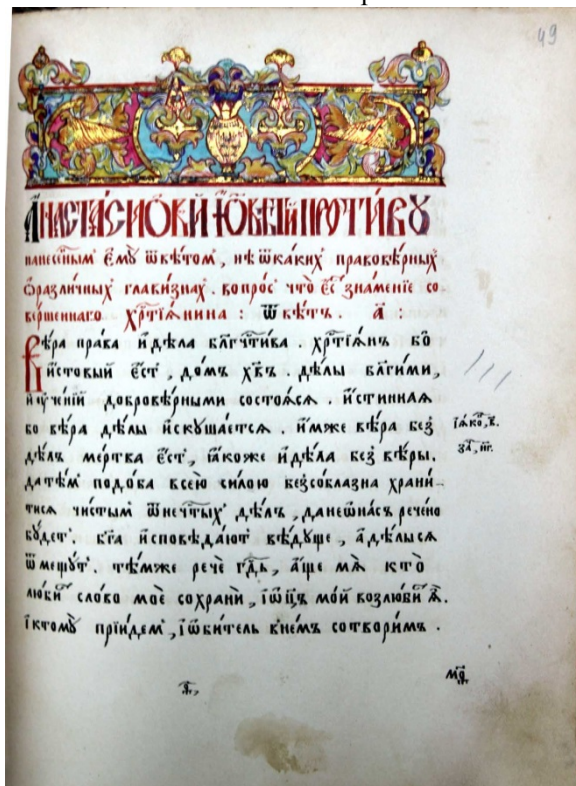 49
А҆НАСТА́СИ ѺКЍ И҆ Ю҆ВЕТЍ ПРОТИ́ВꙊ
нанесе́нным є҆мꙋ̀ ѿвѣ́том, нѣ ѿкаких правовѣ́рных
ѻ҆разли́чных главизнах. вопро́с что є҆́с знаменїе со
ве́ршеннаго хрⷭ҇тїѧнина : ѿвѣ́тъ. а҃ :
Вѣ́ра права и҆дѣ́ла бл҃гчⷭ҇тива. хрⷭ҇тїѧнъ бо
и҆́стовый є҆́ст, до́мъ хв҃ъ. дѣ́лы бл҃ги́ми,
и҆ꙋче́нїй добровѣ́рными состоѧ́сѧ. и҆́стиннаѧ
бо вѣ́ра дѣ́лы и҆скꙋша́етсѧ. и҆́мже вѣ́ра без
дѣ́лъ ме́ртва є҆́ст, ꙗ҆́коже и҆дѣ́ла без вѣ́ры.
І҆а́ко, в҃.
за҃, н҃г.
да тѣ́м подо́ба всею̀ си́лою безсобла́зна храни-
тисѧ чи́стым ѿнечⷭ҇тых дѣ́лъ, данеѡна́съ рече́но
бꙋ́дет. бг҃а и҆сповѣ́дают вѣ́дꙋще, а҆дѣ́лысѧ
ѿме́щꙋт. тѣ́мже рече гдⷭ҇ь, а҆́ще мѧ̀ кто̀
лю́би сло́во моѐ сохранѝ, і҆ѻ҆ц҃ъ мо́й возлю́би ѧ҆̀.
і҆ктомꙋ̀ прїи́дем, і҆ѡ҆би́тель внемъ сотвори́мъ.